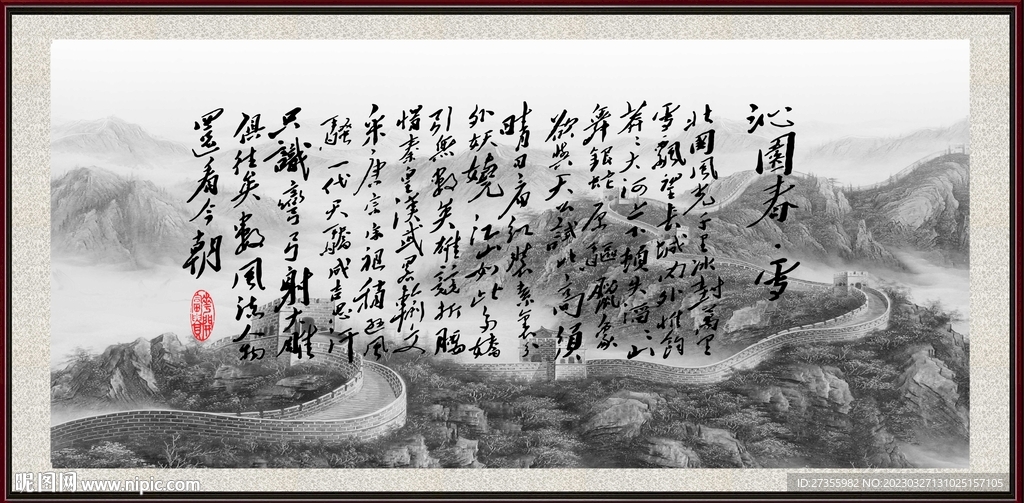 沁園春·雪
北國風光千里冰封萬里
雪飄望長城内外惟餘
莽々大河上下頓失滔々山
舞銀蛇原馳臘象
欲與天公試比高須
晴日看紅裝素裹分
外妖嬈江山如此多嬌
引無數英雄競折腰
惜秦皇漢武略輸文
采唐宗宋祖稍遜風
騷一代天驕成吉思汗
只識彎弓射大雕
俱往矣數風流人物
還看今朝
昵图网 www.nipic.com
ID:27355982 NO:20230327131025157105